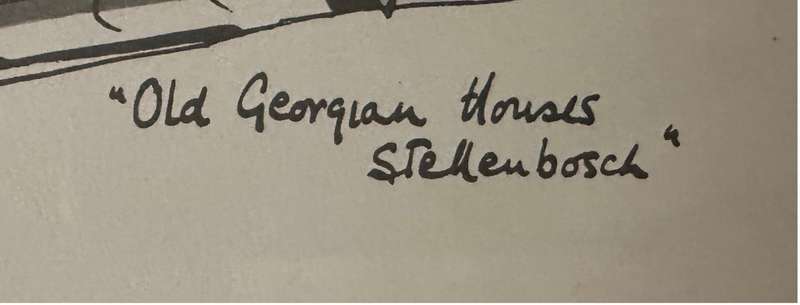 "Old Georgian Houses
Stellenbosch"